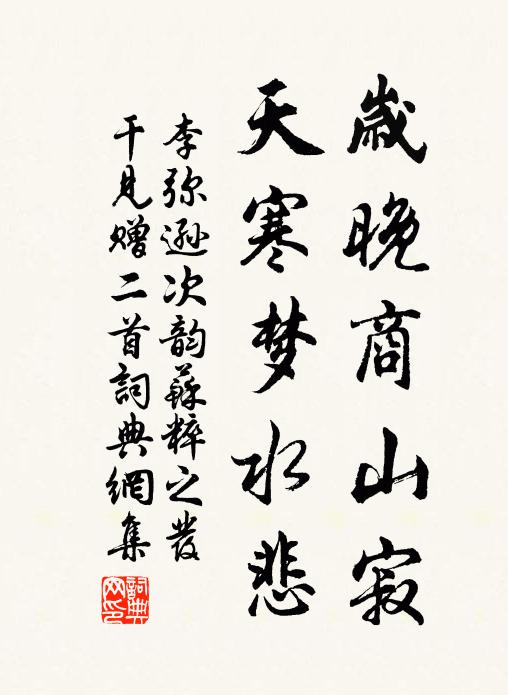 歲晚商山寂
天寒梦水悲
李弥遜次韵蘇粹之發
干見贈二首詞典網集
詞典
网印